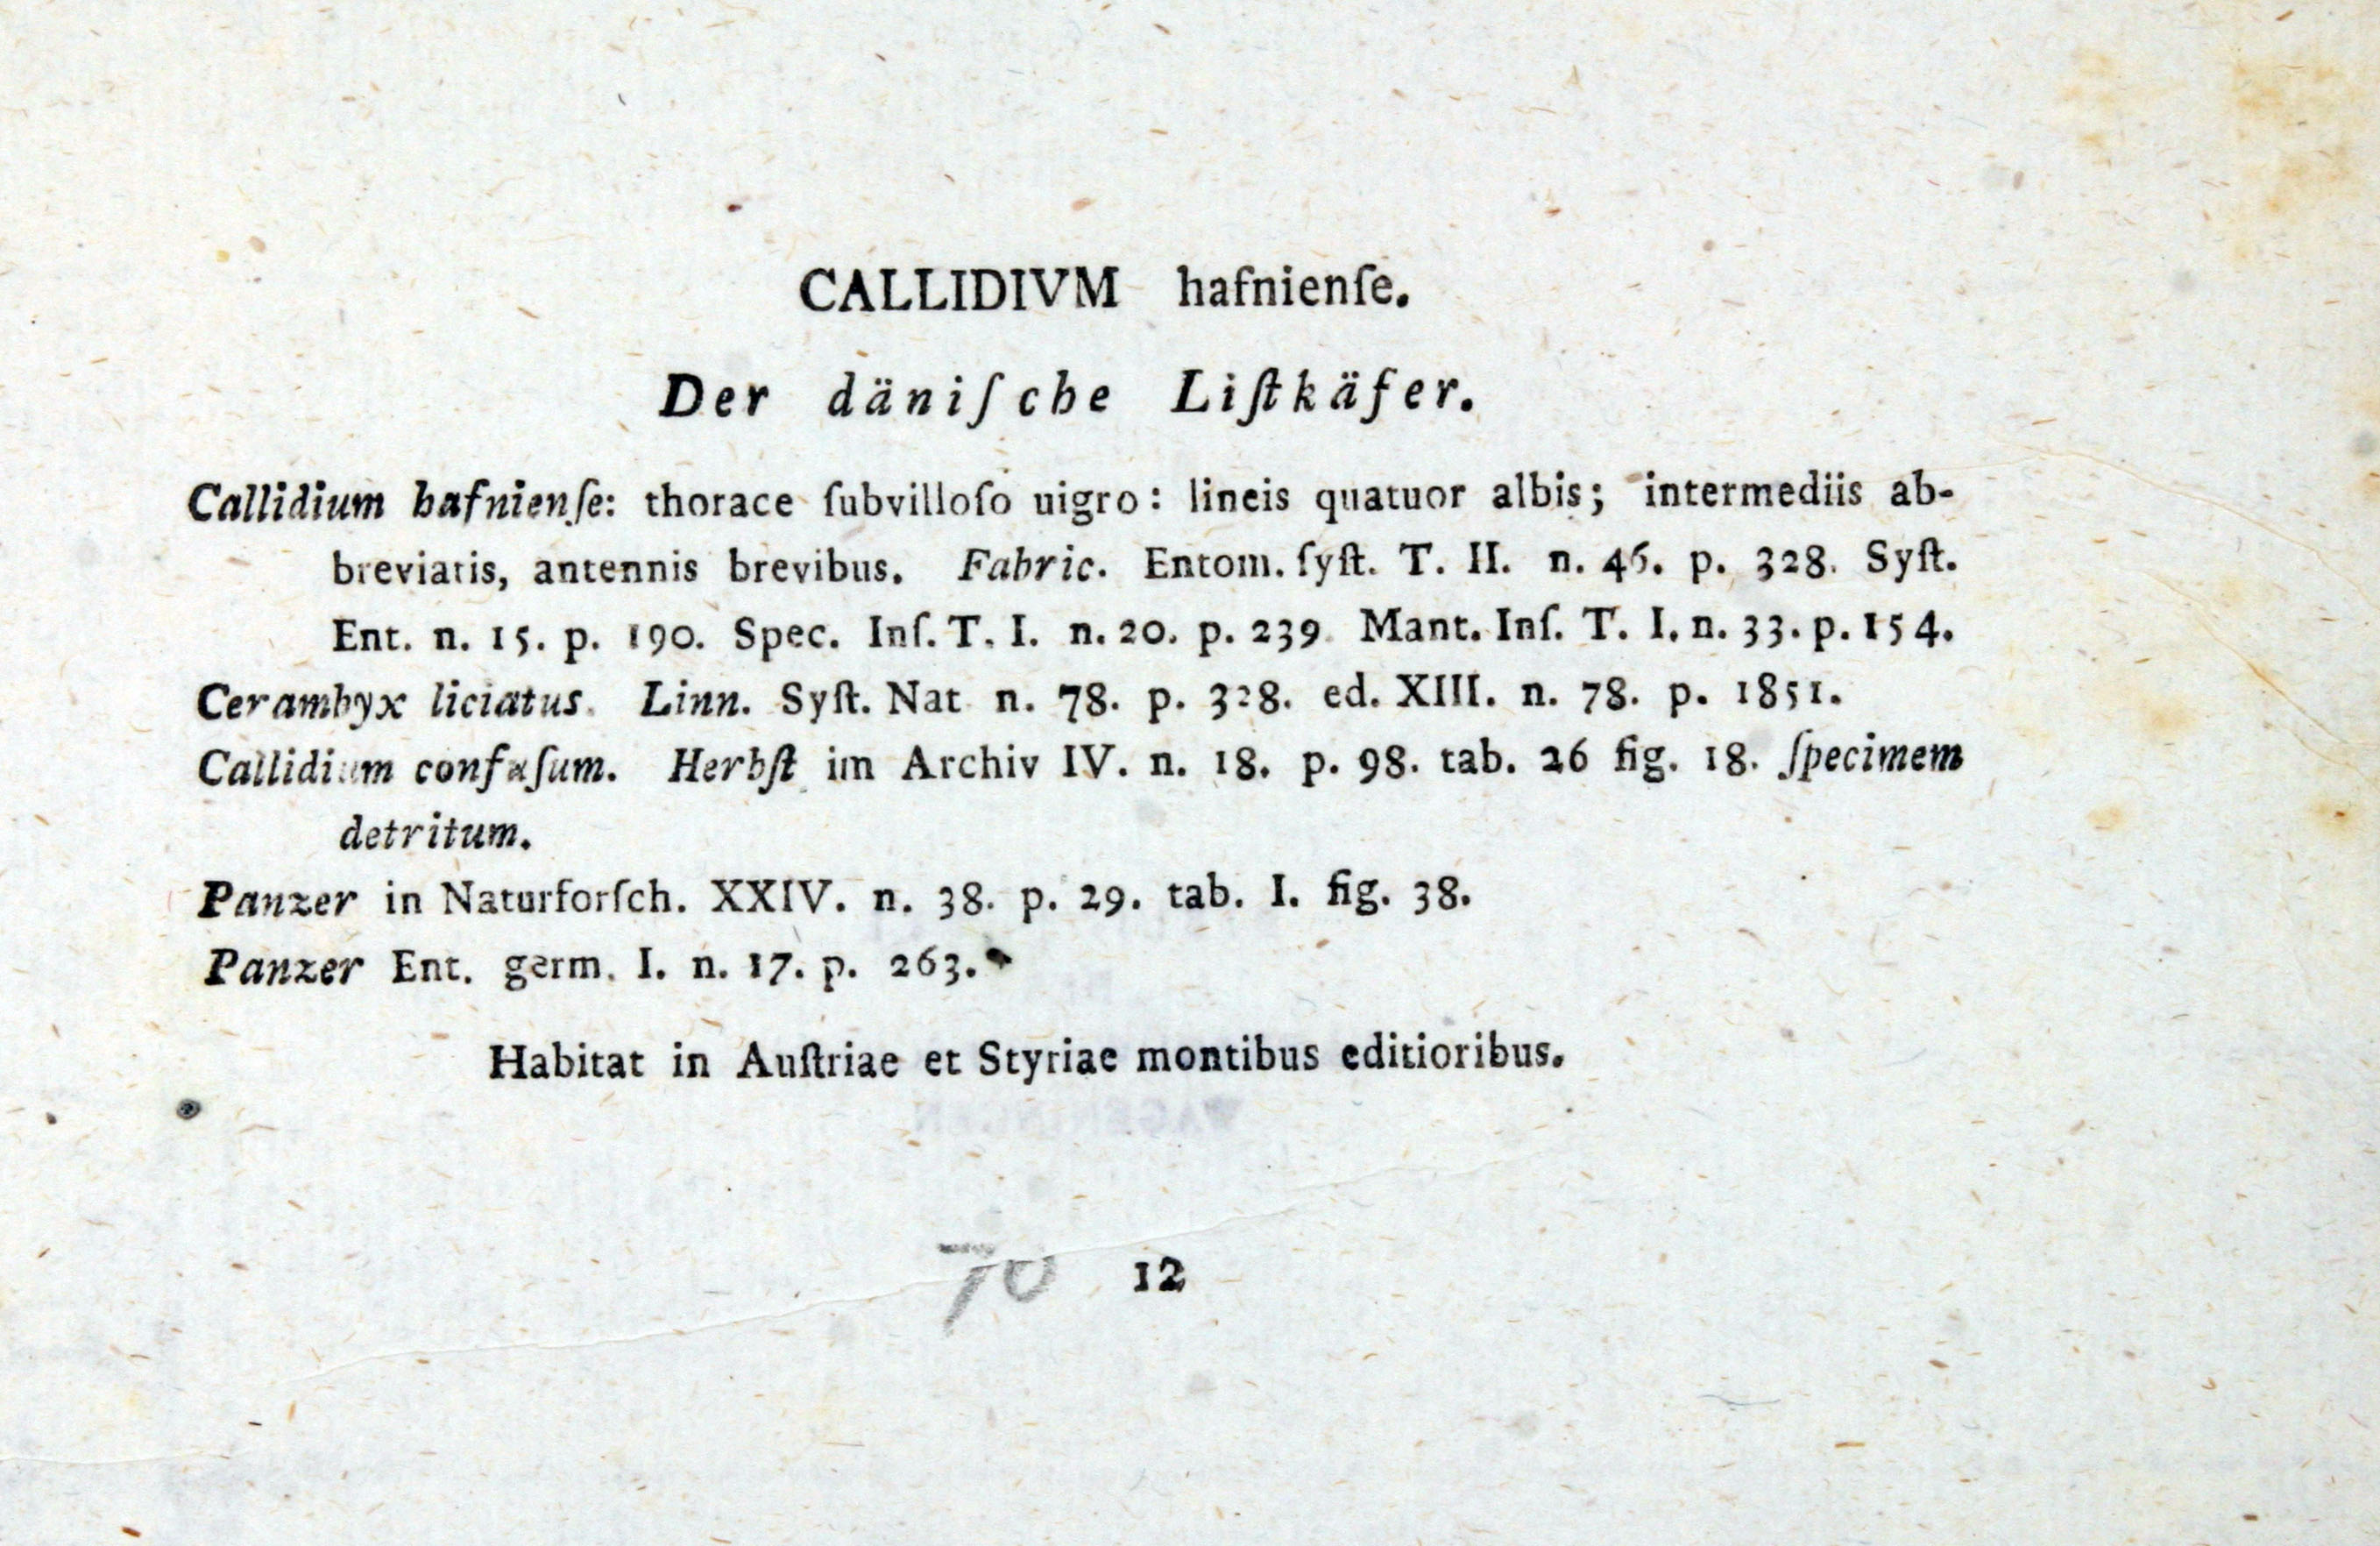 CALLIDIVM hafnienſe.
Der däniſche Liſtkäfer.
Callidium hafnienſe: thorace ſubvilloſo uigro: lineis quatuor albis; intermediis ab-
breviatis, antennis brevibus. Fabric. Entom. ſyſt. T. II. n. 46. p. 328. Syſt.
Ent. n. 15. p. 190. Spec. Inſ. T. I. n. 20. p. 239 Mant. Inſ. T. I. n. 33. p. 154.
Cerambyx liciatus. Linn. Syſt. Nat n. 78. p. 328. ed. XIII. n. 78. p. 1851.
Callidium confuſum. Herbſt im Archiv IV. n. 18. p. 98. tab. 26 fig. 18. ſpecimem
detritum.
Panzer in Naturforſch. XXIV. n. 38. p. 29. tab. I. fig. 38.
Panzer Ent. germ. I. n. 17. p. 263.
Habitat in Auſtriae et Styriae montibus editioribus.
70 12